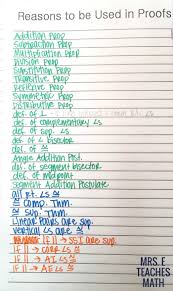 Reasons to be Used in Proofs
Addition Prop
Subtraction Prop
Multiplication Prop
Division Prop
Substitution Prop
Transitive Prop
Reflexive Prop
Symmetric Prop
Distributive Prop
def. of
def. of complementary ∠s
def. of sup. ∠s
def. of ∠ bisector
def. of ≅
Angle Addition Post.
def. of segment bisector
def. of midpoint
Segment Addition Postulate
all rt. ∠s ≅
≅ Comp. Thm.
≅ Sup. Thm.
Linear Pairs are sup.
Vertical ∠s are ≅
If || → SSI are sup.
If || → corr ∠s ≅
If || → AI ∠s ≅
If || → AE ∠s ≅
MRS. E
TEACHES
MATH